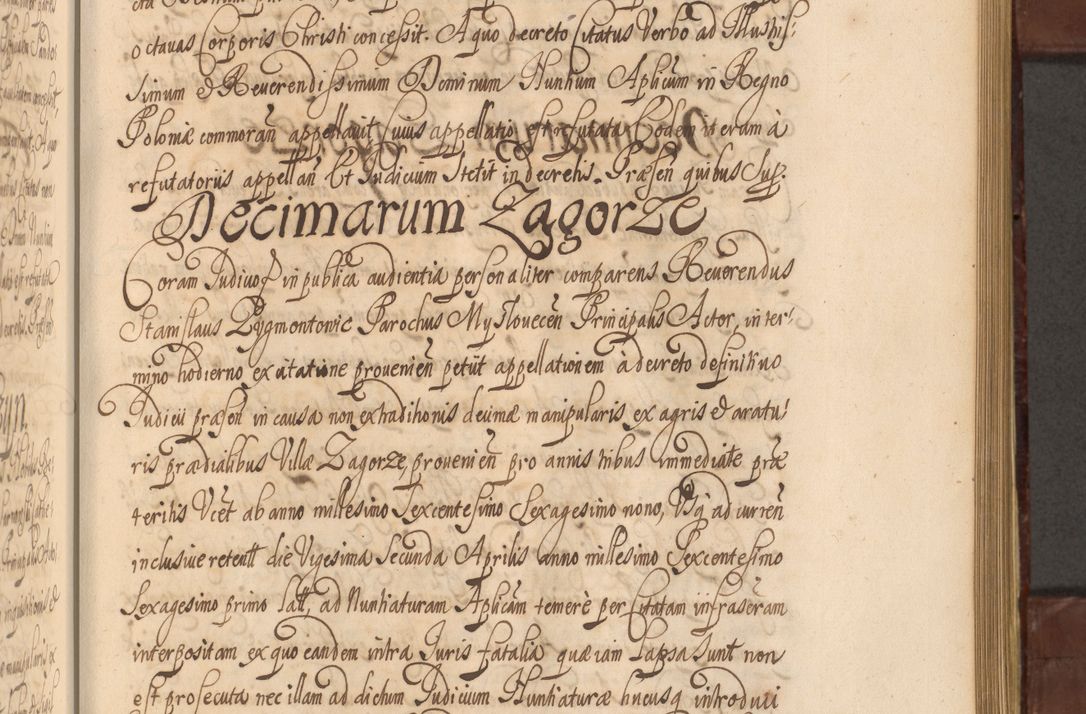 octauas Corporis Christi concessit. A quo decreto Citatus Verbo ad Illustris:
simum et Reuerendissimum Dominum Nuntium Aplicum in Regno
Poloniæ commoran appellauit, cuius appellatio est refutata Eodem iteram à
refutatoriis appellan Et Judicium stetit in decretis. Præsen quibus Sup.
Decimarum Zagorze
Coram Judicio in publica audientia personaliter comparens Reuerendus
Stanislaus Zygmontowic Parochus Myslouecen Principalis Actor, in ter:
mino hodierno ex citatione prouenien petiit appellationem à decreto definitiuo
Judicii præsen in causa non extraditionis decimæ manipularis ex agris et aratu:
ris prædialibus Villæ Zagorze, prouenien pro annis tribus immediate præ
teritis Vcet ab anno millesimo sexcentesimo sexagesimo nono, Vsq ad curren
inclusiue retent die Vigesima secunda Aprilis anno millesimo sexcentesimo
sexagesimo primo lat, ad Nuntiaturam Aplicam temerè per Citatam infraseram
interpositam ex quo eandem intra Juris fatalia quæ iam lapsa sunt non
est prosecuta nec illam ad dictum Judicium Nuntiaturæ hucusq introduci